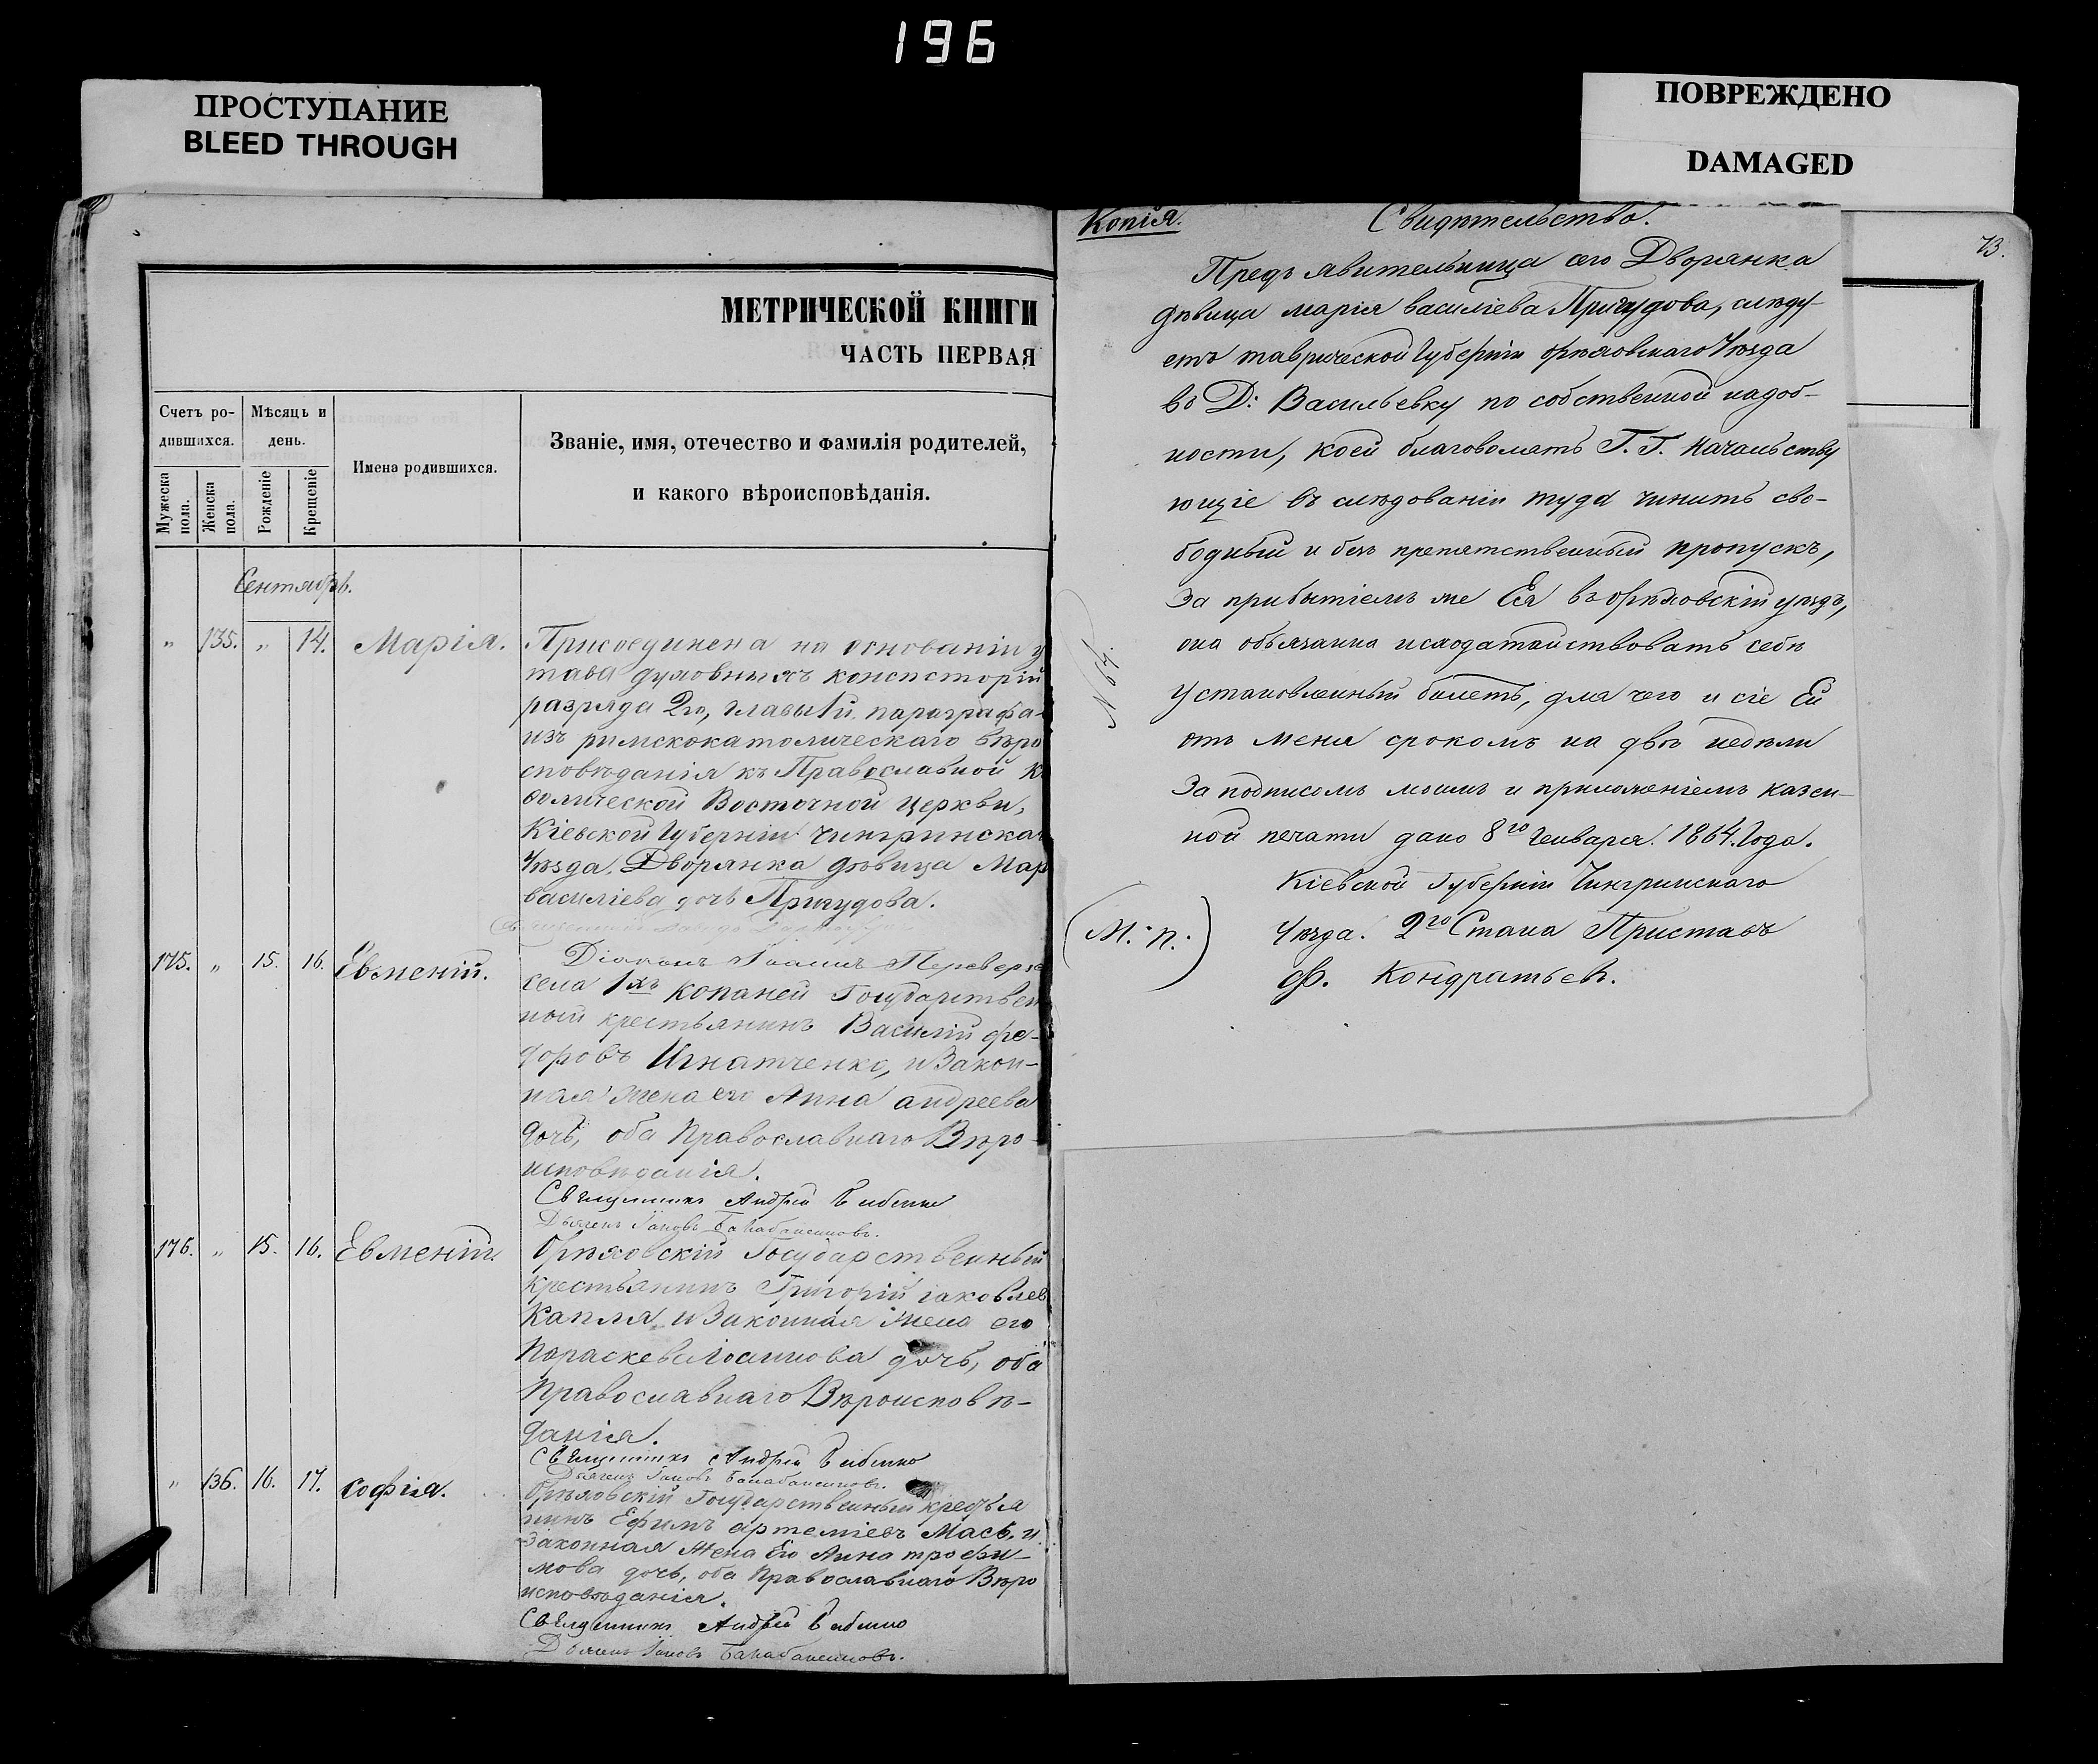 196
ПРОСТУПАНИЕ
BLEED THROUGH
ПОВРЕЖДЕНО
DAMAGED
МЕТРИЧЕСКОЙ КНИГИ
ЧАСТЬ ПЕРВАЯ
Счетъ ро-
дившихся.
Мужеска
пола.
Женска
пола.
Мѣсяць и
день.
Рожденіе
Крещеніе
Имена родившихся.
Званіе, имя, отечество и фамилія родителей,
и какого вѣроисповѣданія.
Сентябрь.
" 135. " 14. Марія.
Присоединена на основаніи у
тава духовныхъ консисторій
разряда 2го, главы 1й параграфа
изъ римскокатолическаго вѣро
сповѣданія къ Православной К
ѳолической Восточной церкви,
Кіевской Губерніи Чигиринска
Уѣзда, Дворянка дѣвица Мар
василіева дочь Причудова.
175. " 15. 16. Евменій.
Діаконъ Іоаннъ
села 1хъ копаней Государствен
ный крестьянинъ Василій фе-
доровъ Игнатченко, и Закон-
ная жена его Анна андреева
дочь, оба Православнаго Вѣро-
исповѣданія.
Священникъ Андрей
Дьячекъ Іаковъ
176. " 15. 16. Евменій.
Орѣховскій Государственный
крестьянинъ Григорій іаковлев
Капля, и Законная жена его
Параскева Іоаннова дочь, оба
Православнаго Вѣроисповѣ-
данія.
Священникъ Андрей
Дьячекъ Іаковъ
" 136. 16. 17. софія.
Орѣховскій Государственный кресть
нинъ Ефимъ артеміевъ Мась, и
законная жена Его Анна трофи-
мова дочь, оба Православнаго Вѣро
исповѣданія.
Священникъ Андрей
Дьячекъ Іаковъ
73.
Копія. Свидѣтельство.
Предъявительница сего Дворянка
дѣвица марія василіева Причудова, слѣду-
етъ таврической Губерніи орѣховскаго Уѣзда
въ Д: Васильевку по собственной надоб-
ности, коей благоволятъ Г. Г. Начальству
ющіе въ слѣдованіи туда чинить сво-
бодный и безъ препятственный пропускъ,
За прибытіемъ же Ея въ орѣховскій уѣздъ,
она обязанна исходатайствовать себѣ
установленный билетъ, для чего и сіе Ей
отъ меня срокомъ на двѣ недѣли
За подписомъ моимъ и приложеніемъ казен-
ной печати дано 8го Генваря. 1864. Года.
Кіевской Губерніи Чигринскаго
Уѣзда. 2го Стана Приставъ
Ф. Кондратьевъ.
(М. п.)